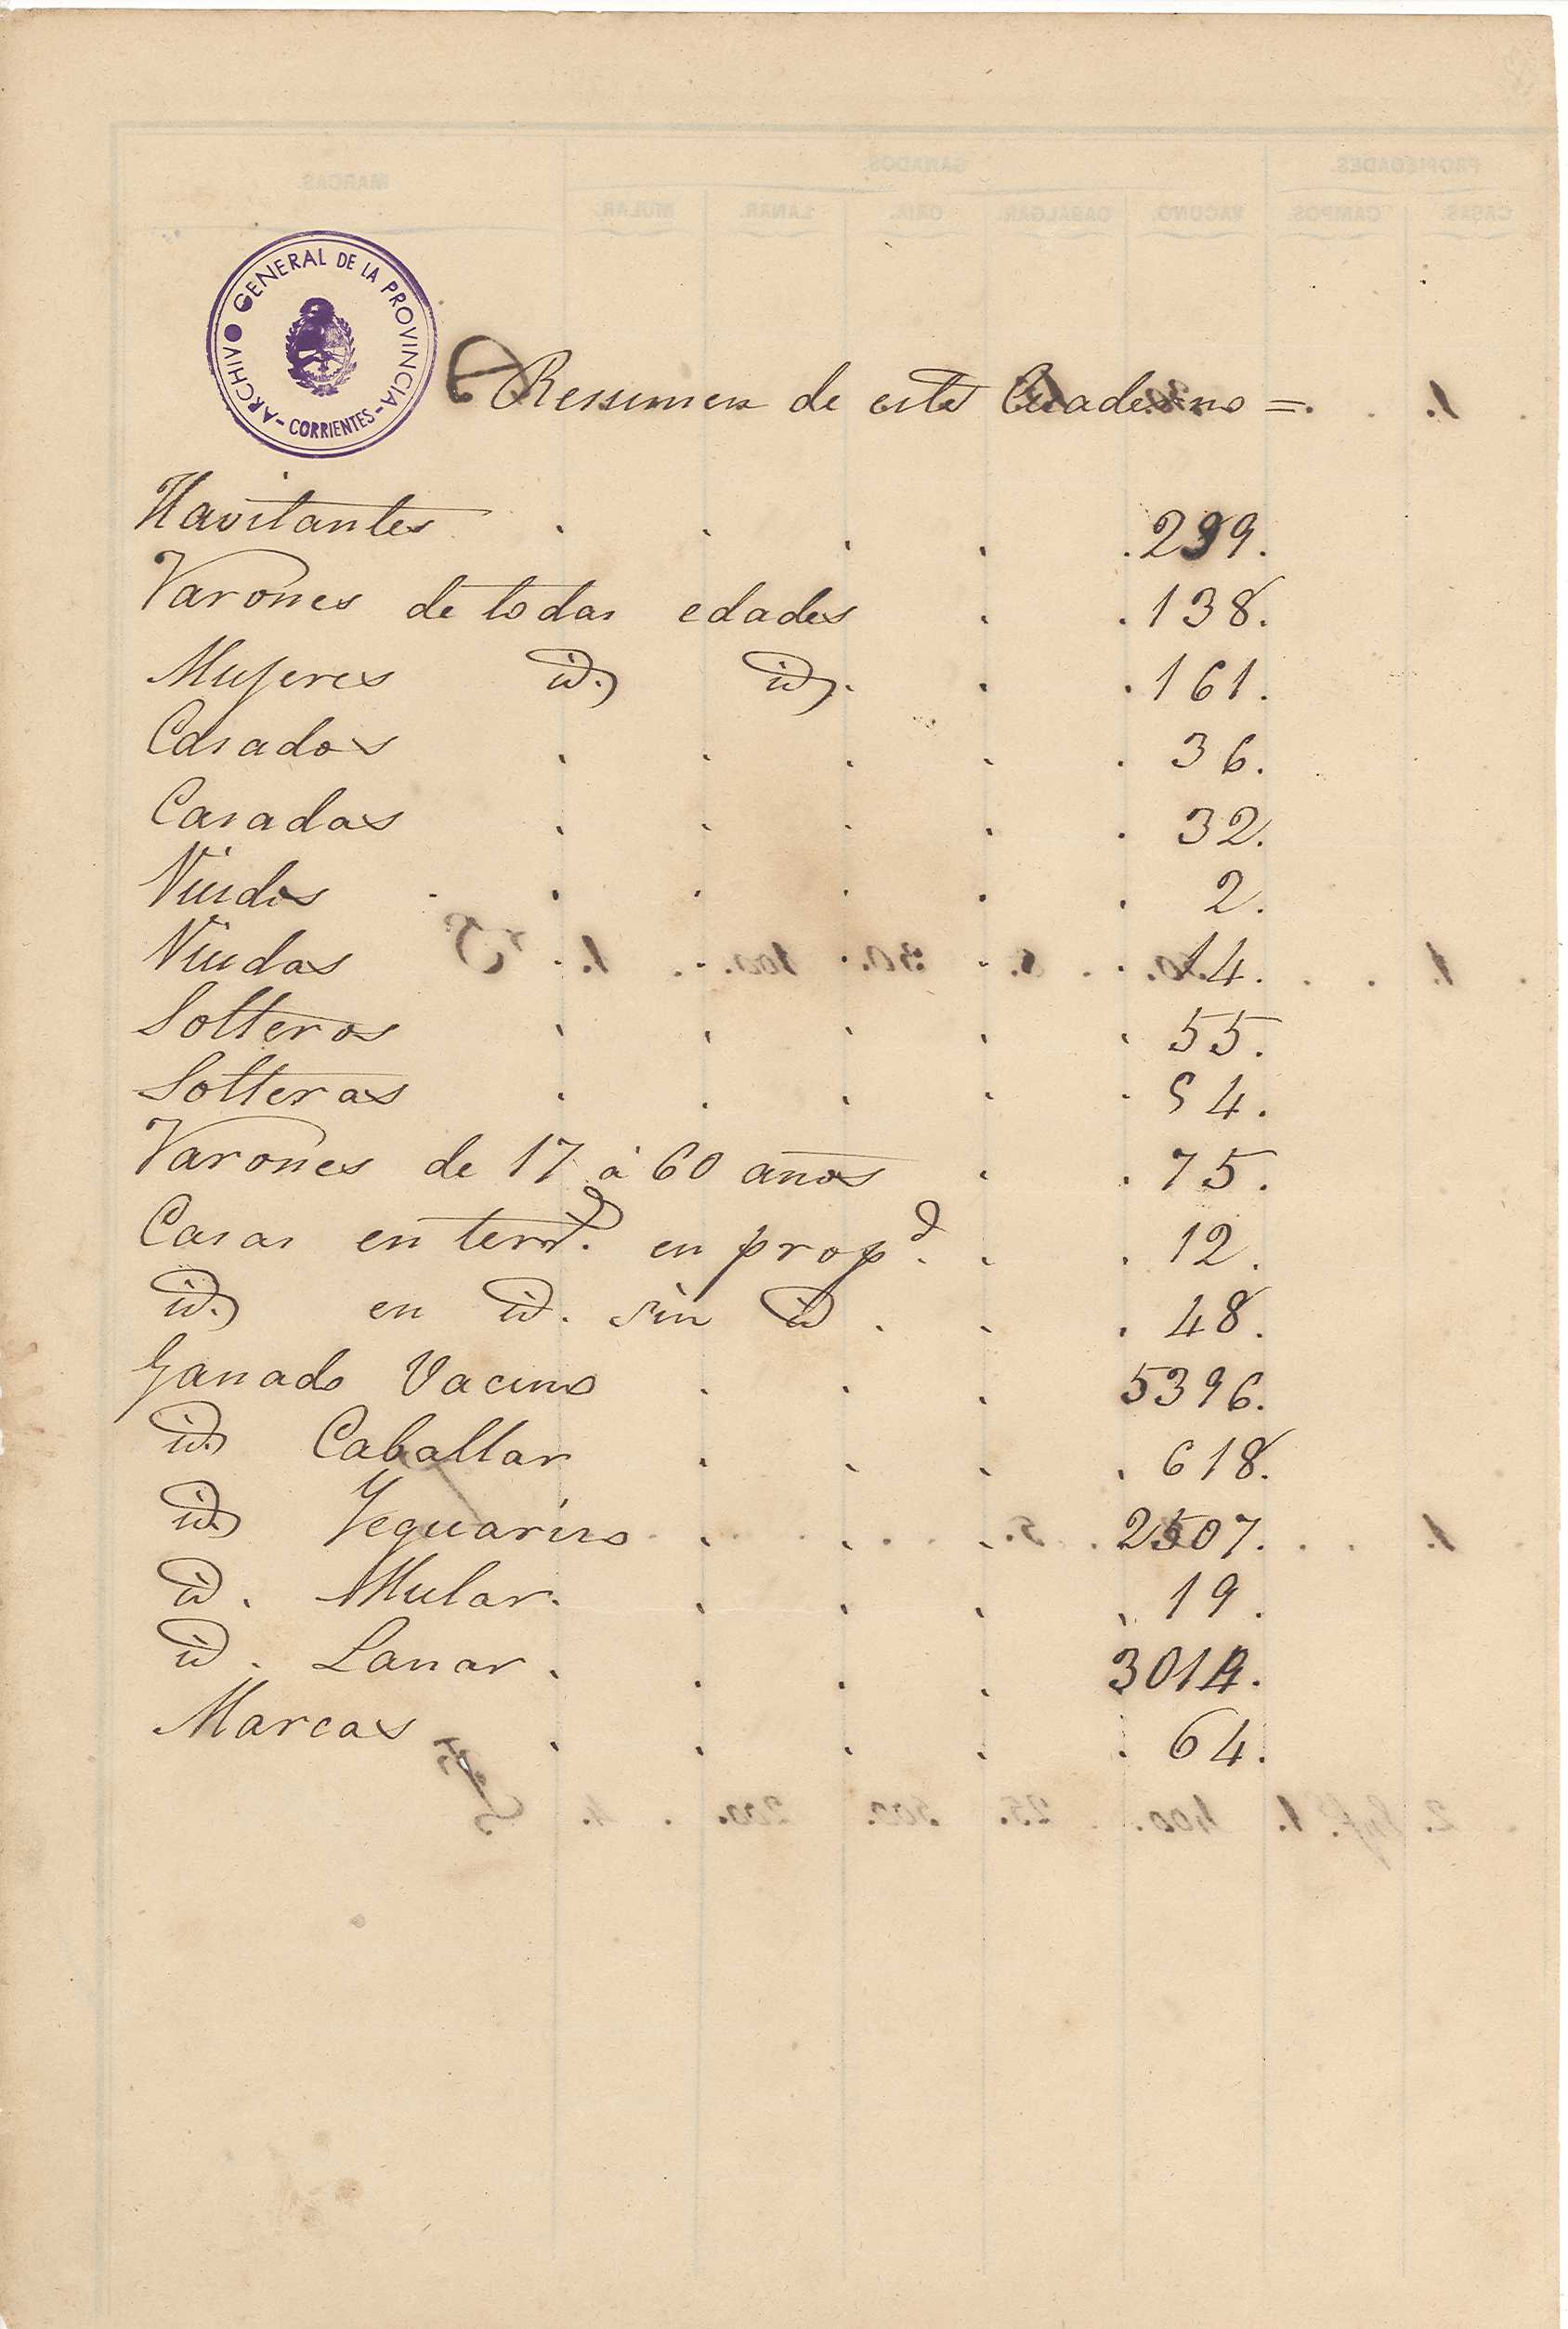 ARCHIVO GENERAL DE LA PROVINCIA - CORRIENTES -
Ressumen de este Cuaderno =
Havitantes . . . . . 299.
Varones de todas edades . . 138.
Mujeres id. id. . . 161.
Casados . . . . . 36.
Casadas . . . . . 32.
Viudos . . . . . . 2.
Viudas 14.
Solteros . . . . . 55.
Solteras . . . . . 54.
Varones de 17 á 60 años . . 75.
Casas en terr.d en prop.d . . 12.
id. en id. sin id . . . 48.
Ganado Vacuno . . . 5396.
id. Caballar . . . . 618.
id. Yeguarizo . . . 2507.
id. Mular. . . . . 19.
id. Lanar . . . . 3014.
Marcas . . . . . 64.